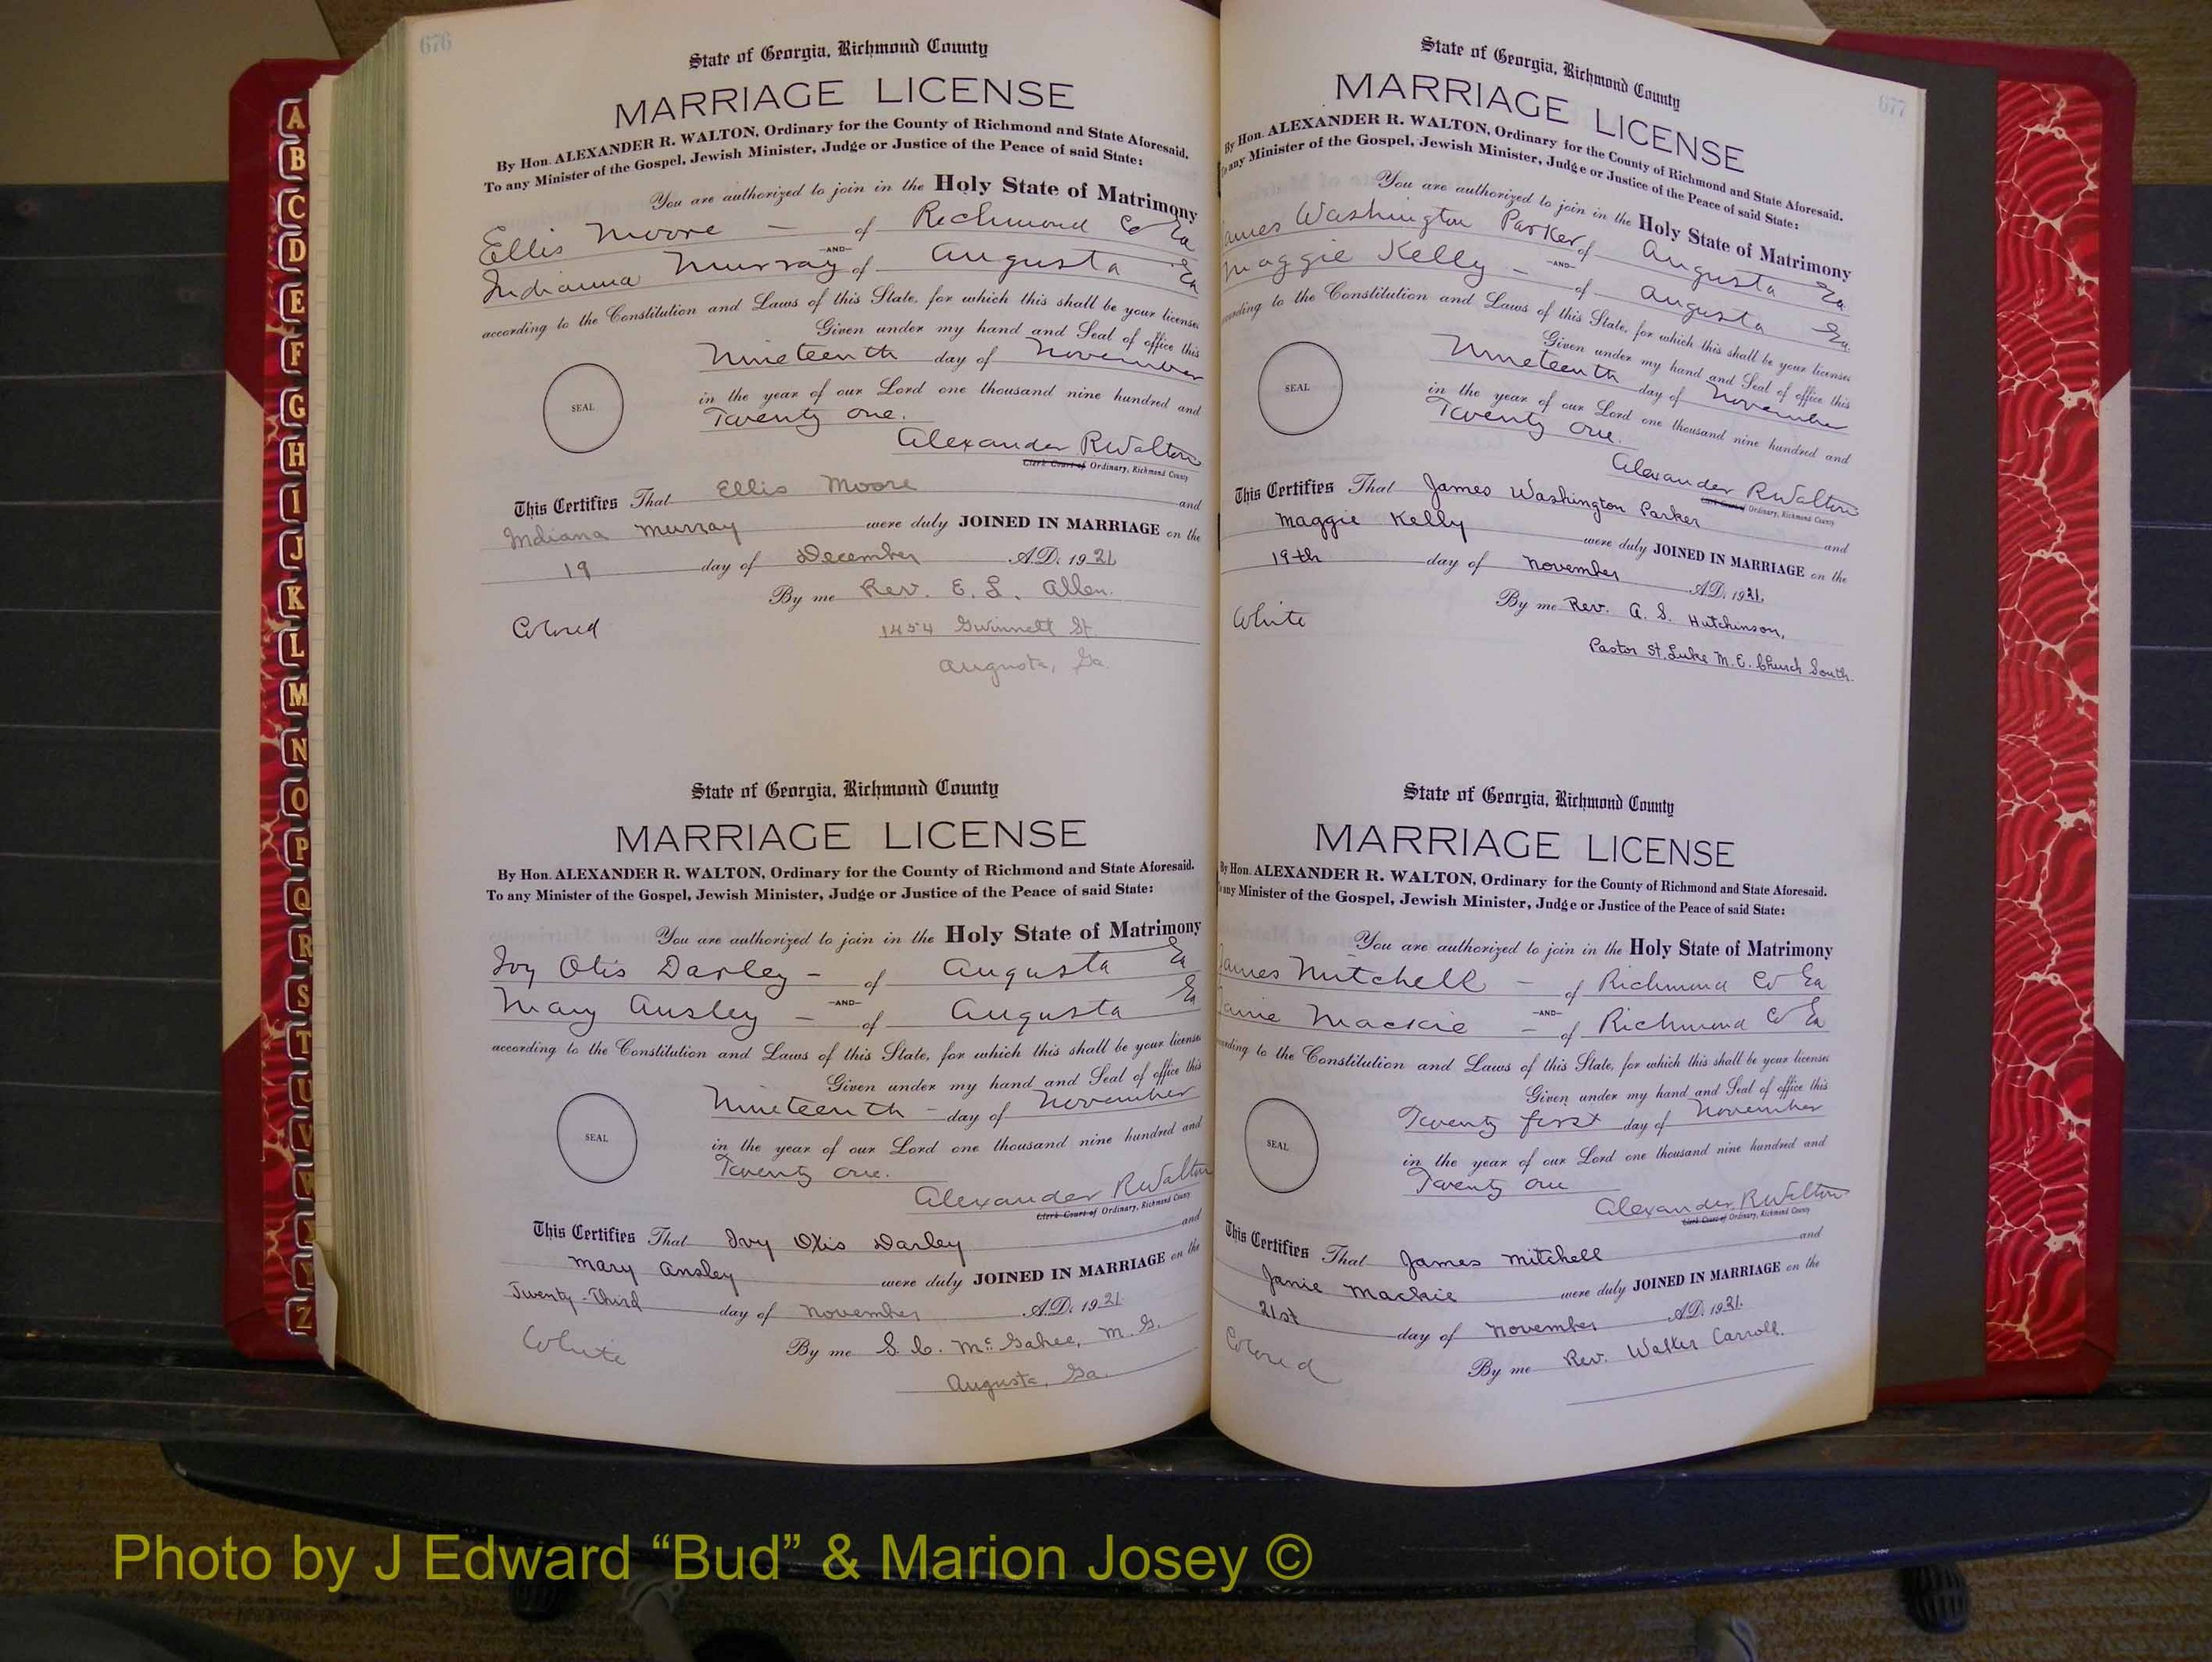 676
State of Georgia, Richmond County
MARRIAGE LICENSE
By Hon. ALEXANDER R. WALTON, Ordinary for the County of Richmond and State Aforesaid.
To any Minister of the Gospel, Jewish Minister, Judge or Justice of the Peace of said State:
You are authorized to join in the Holy State of Matrimony
Ellis Moore - of Richmond Co Ga
-AND-
Indianna Murray of Augusta Ga
according to the Constitution and Laws of this State, for which this shall be your license
Given under my hand and Seal of office this
Nineteenth day of November
in the year of our Lord one thousand nine hundred and
SEAL
Twenty one.
Alexander R Walton
Clerk Court of Ordinary, Richmond County
This Certifies That Ellis Moore and
Indiana Murray were duly JOINED IN MARRIAGE on the
19 day of December A.D. 1921
By me Rev. E. L. Allen.
Colored
1454 Gwinnett St
Augusta, Ga.
State of Georgia, Richmond County
MARRIAGE LICENSE
By Hon. ALEXANDER R. WALTON, Ordinary for the County of Richmond and State Aforesaid.
To any Minister of the Gospel, Jewish Minister, Judge or Justice of the Peace of said State:
You are authorized to join in the Holy State of Matrimony
Ivy Otis Darley - of Augusta Ga
-AND-
Mary Ansley - of Augusta Ga
according to the Constitution and Laws of this State, for which this shall be your license
Given under my hand and Seal of office this
Nineteenth - day of November
SEAL
in the year of our Lord one thousand nine hundred and
Twenty one.
Alexander R Walton
Clerk Court of Ordinary, Richmond County
This Certifies That Ivy Otis Darley and
Mary Ansley were duly JOINED IN MARRIAGE on the
Twenty-Third day of November A.D. 1921
White
By me S. C. McGahee, M. G.
Augusta, Ga.
677
State of Georgia, Richmond County
MARRIAGE LICENSE
By Hon. ALEXANDER R. WALTON, Ordinary for the County of Richmond and State Aforesaid.
To any Minister of the Gospel, Jewish Minister, Judge or Justice of the Peace of said State:
You are authorized to join in the Holy State of Matrimony
James Washington Parker of Augusta Ga
-AND-
Maggie Kelly - of Augusta Ga
according to the Constitution and Laws of this State, for which this shall be your license
Given under my hand and Seal of office this
Nineteenth day of November
SEAL
in the year of our Lord one thousand nine hundred and
Twenty one.
Alexander R Walton
Clerk Court of Ordinary, Richmond County
This Certifies That James Washington Parker and
Maggie Kelly were duly JOINED IN MARRIAGE on the
19th day of November A.D. 1921.
White
By me Rev. A. S. Hutchinson,
Pastor St. Luke M. E. Church South.
State of Georgia, Richmond County
MARRIAGE LICENSE
By Hon. ALEXANDER R. WALTON, Ordinary for the County of Richmond and State Aforesaid.
To any Minister of the Gospel, Jewish Minister, Judge or Justice of the Peace of said State:
You are authorized to join in the Holy State of Matrimony
James Mitchell - of Richmond Co Ga
-AND-
Janie Mackie - of Richmond Co Ga
according to the Constitution and Laws of this State, for which this shall be your license
Given under my hand and Seal of office this
Twenty first day of November
SEAL
in the year of our Lord one thousand nine hundred and
Twenty one
Alexander R Walton
Clerk Court of Ordinary, Richmond County
This Certifies That James Mitchell and
Janie Mackie were duly JOINED IN MARRIAGE on the
21st day of November A.D. 1921.
Colored
By me Rev. Walker Carroll.
A
B
C
D
E
F
G
H
I
J
K
L
M
N
O
P
Q
R
S
T
U
V
W
Z
Photo by J Edward “Bud” & Marion Josey ©